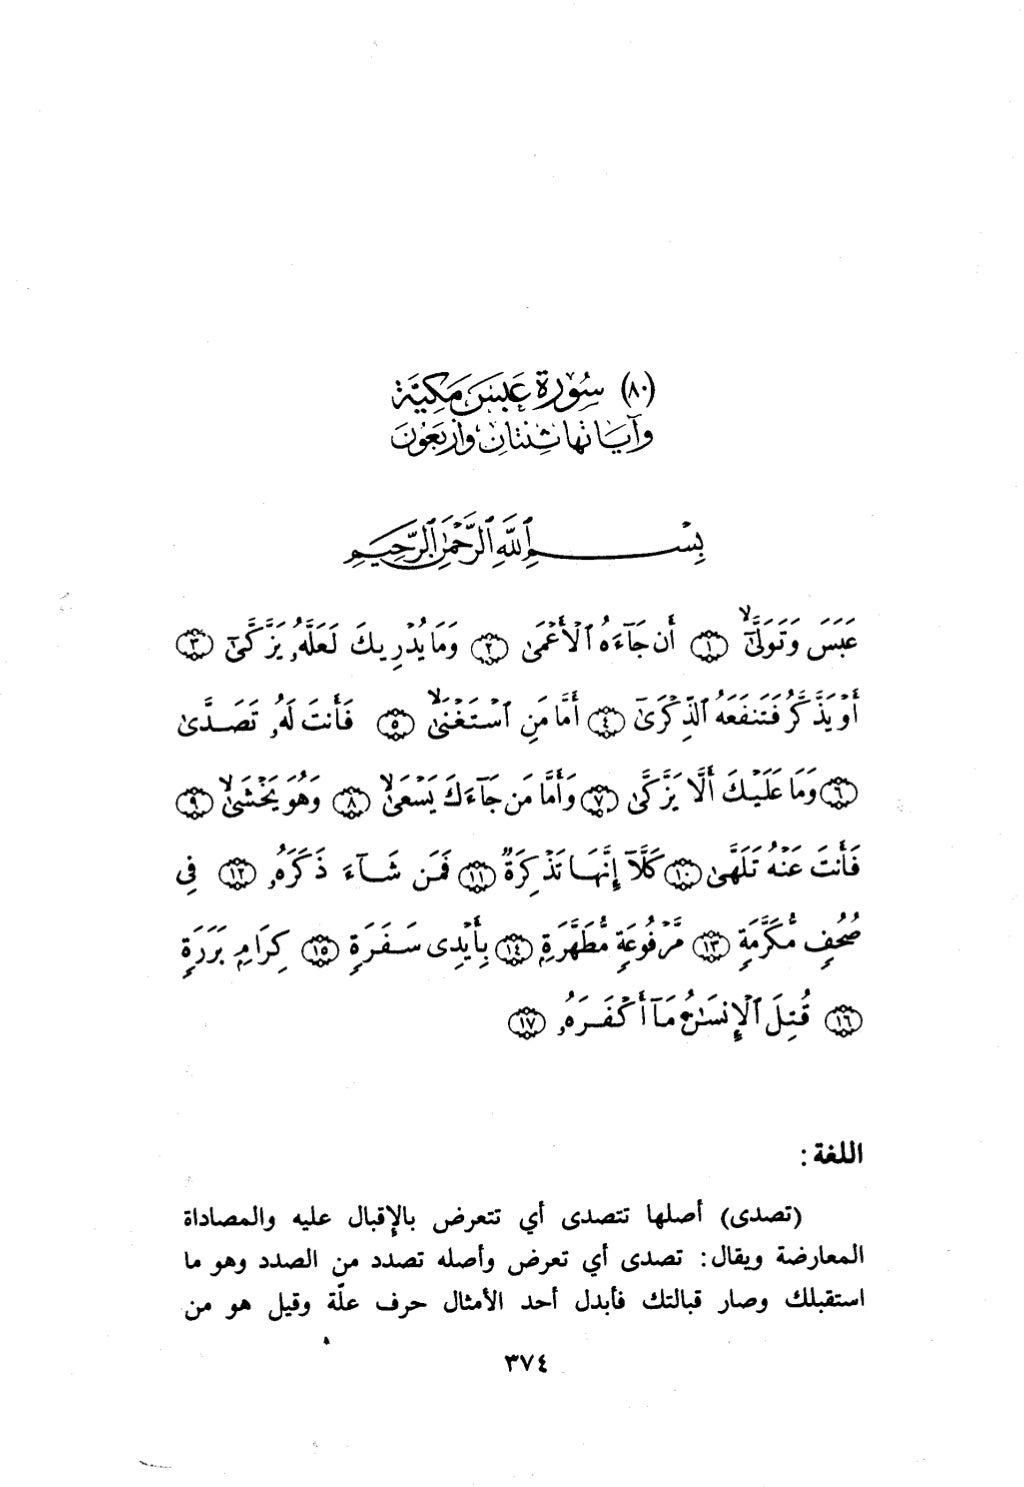 (٨٠) سُورَة عَبَسَ مَكِيَّة
وَآيَاتُهَا ثِنْتَانِ وَأَرْبَعُونَ
بِسْمِ ٱللَّهِ ٱلرَّحْمَٰنِ ٱلرَّحِيمِ
عَبَسَ وَتَوَلَّىٰٓ ۙ ﴿١﴾ أَن جَآءَهُ ٱلْأَعْمَىٰ ﴿٢﴾ وَمَا يُدْرِيكَ لَعَلَّهُۥ يَزَّكَّىٰٓ ﴿٣﴾
أَوْ يَذَّكَّرُ فَتَنفَعَهُ ٱلذِّكْرَىٰٓ ﴿٤﴾ أَمَّا مَنِ ٱسْتَغْنَىٰ ۙ ﴿٥﴾ فَأَنتَ لَهُۥ تَصَدَّىٰ
﴿٦﴾ وَمَا عَلَيْكَ أَلَّا يَزَّكَّىٰ ﴿٧﴾ وَأَمَّا مَن جَآءَكَ يَسْعَىٰ ۙ ﴿٨﴾ وَهُوَ يَخْشَىٰ ۙ ﴿٩﴾
فَأَنتَ عَنْهُ تَلَهَّىٰ ﴿١٠﴾ كَلَّآ إِنَّهَا تَذْكِرَةٌ ﴿١١﴾ فَمَن شَآءَ ذَكَرَهُۥ ﴿١٢﴾ فِى
صُحُفٍ مُّكَرَّمَةٍ ﴿١٣﴾ مَّرْفُوعَةٍ مُّطَهَّرَةٍۭ ﴿١٤﴾ بِأَيْدِى سَفَرَةٍ ﴿١٥﴾ كِرَامٍۭ بَرَرَةٍ
﴿١٦﴾ قُتِلَ ٱلْإِنسَٰنُ مَآ أَكْفَرَهُۥ ﴿١٧﴾
اللغة :
(تصدى) أصلها تتصدى أي تتعرض بالإقبال عليه والمصاداة
المعارضة ويقال: تصدى أي تعرض وأصله تصدد من الصدد وهو ما
استقبلك وصار قبالتك فأبدل أحد الأمثال حرف علّة وقيل هو من
٣٧٤